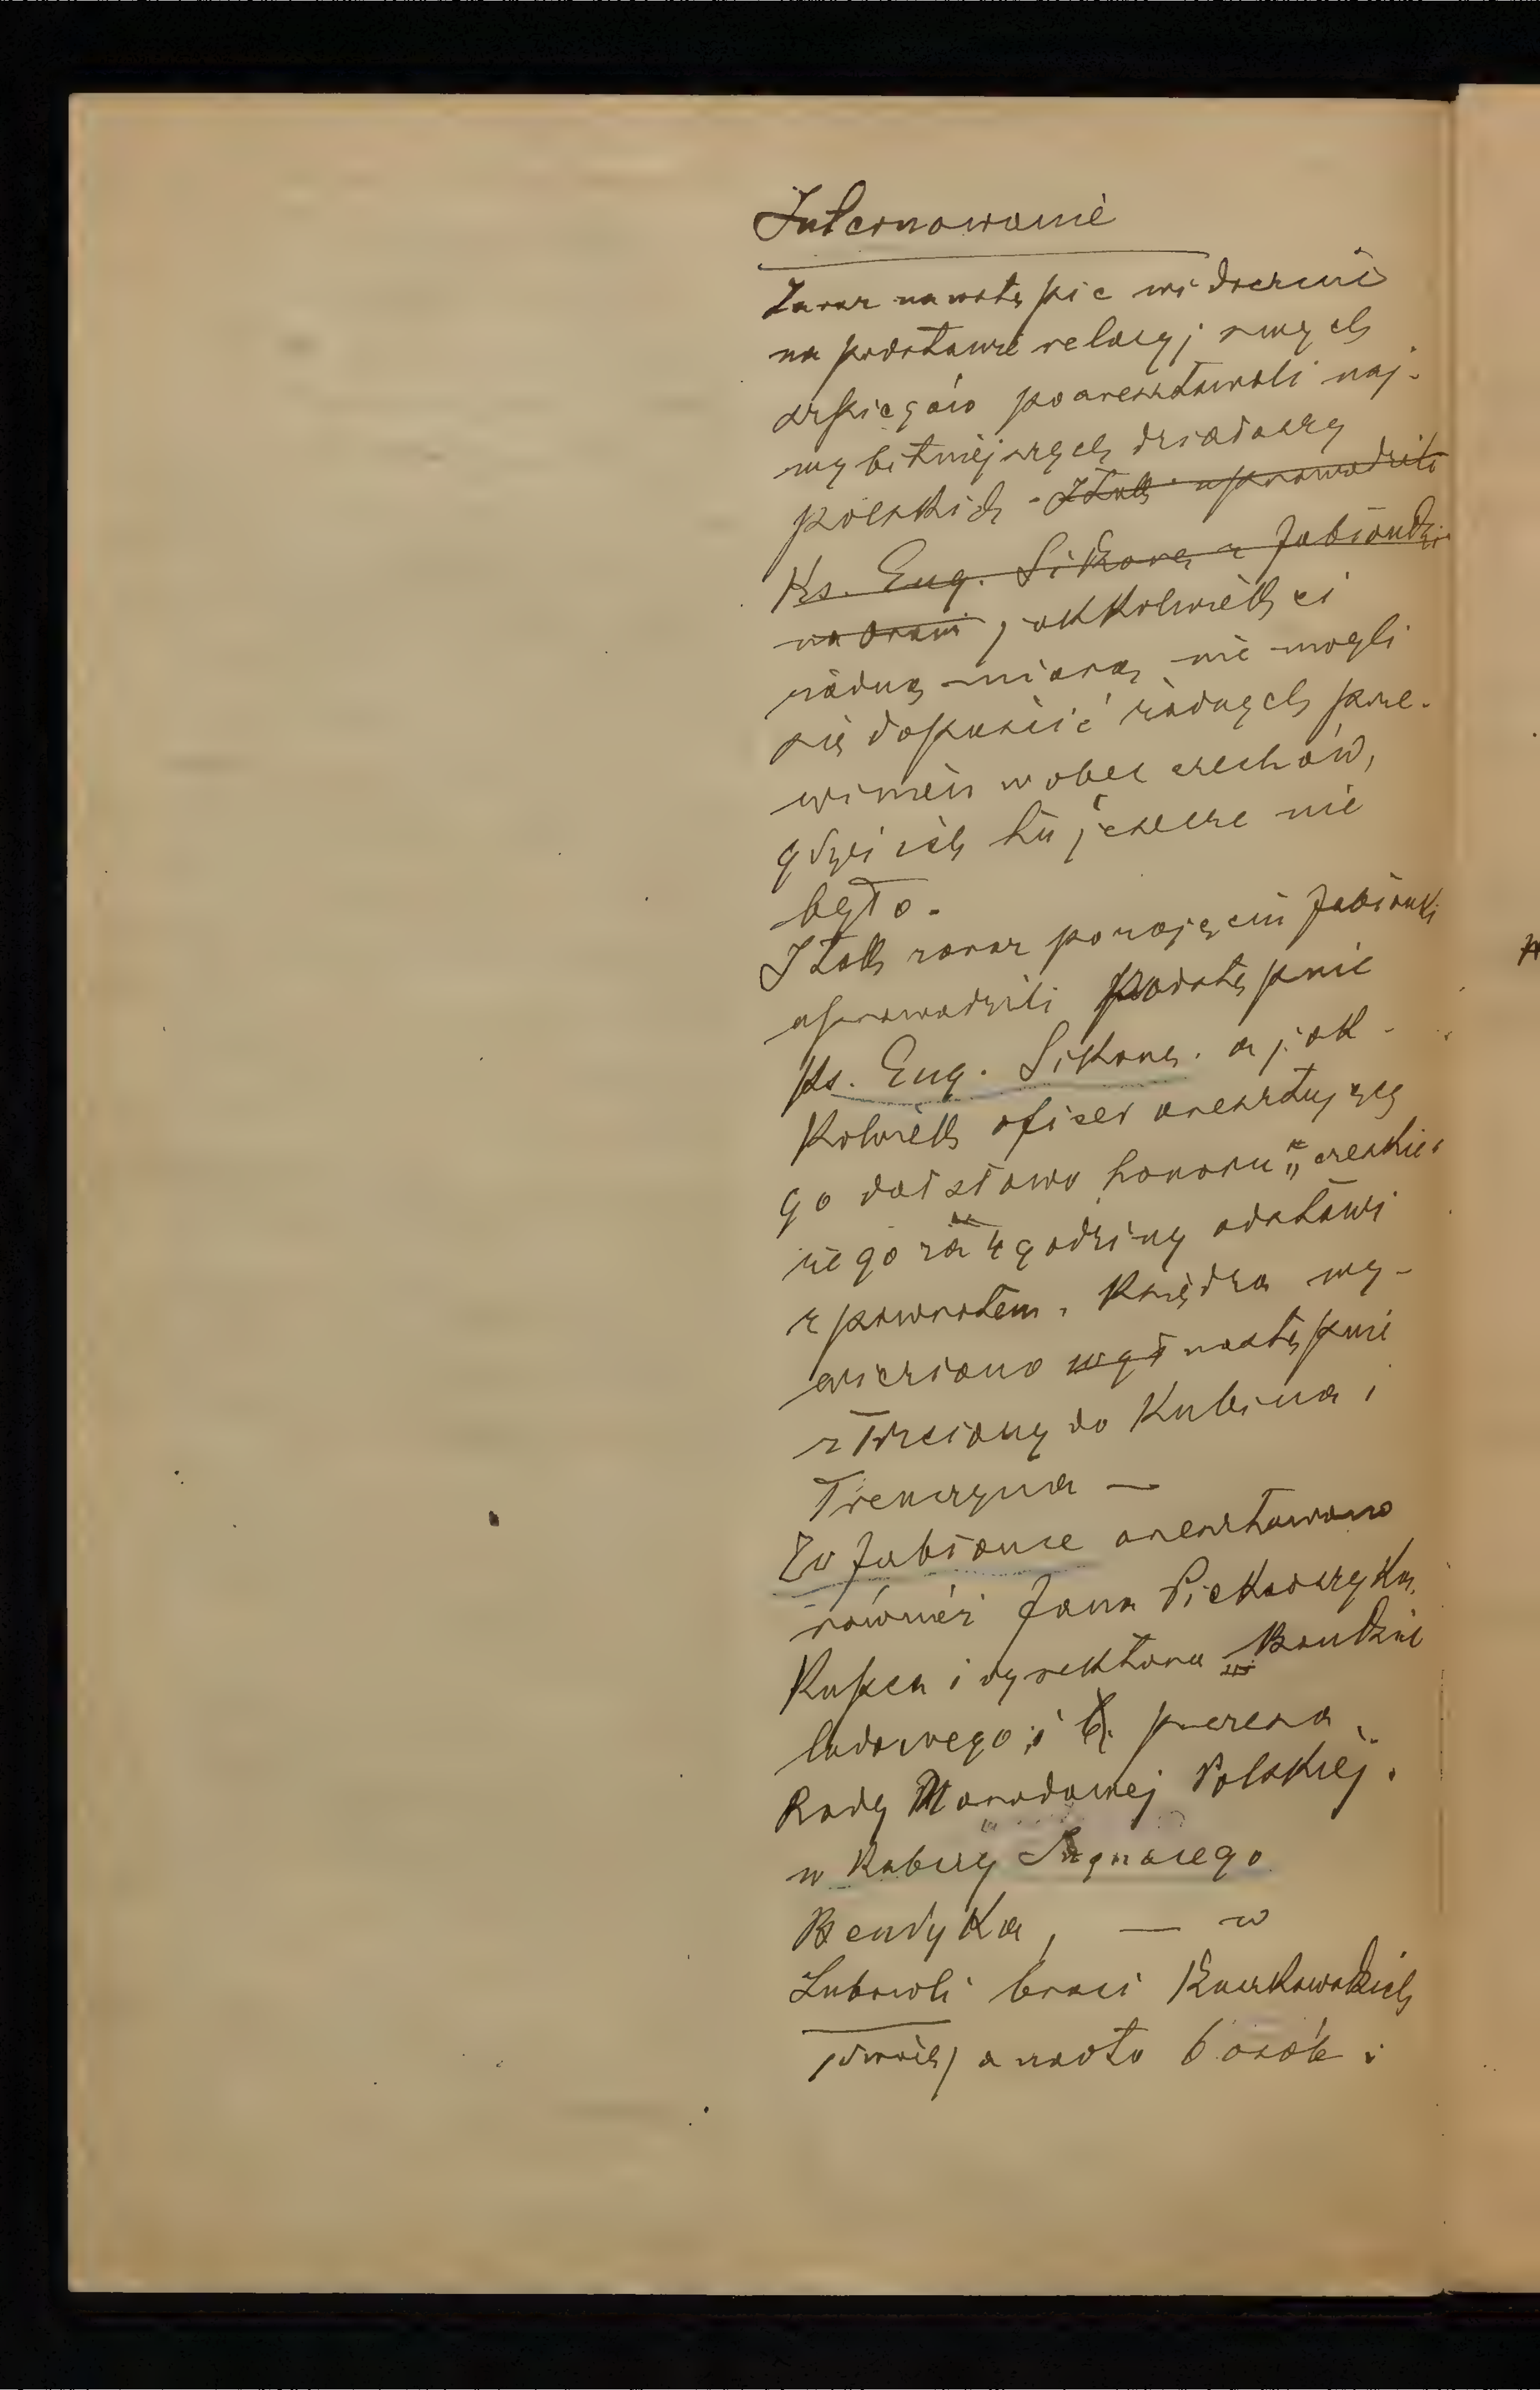 Internowanie
Zaraz na wstępie widocznie
na podstawie relacyj swych
szpiegów poaresztowali naj-
wybitniejszych działaczy
polskich - I tak uprowadzili
Ks. Eug. Sikorę z Jabłonki
na Orawi, jakkolwiek ci
żadną miarą nie mogli
się dopuścić żadnych prze-
winień wobec czechów,
gdyż ich tu jeszcze nie
było.
I tak zaraz po zajęciu Jabłonki
uprowadzili podstępnie
Ks. Eug. Sikorę. a jak-
kolwiek oficer aresztujący
go dał słowo honoru "czeskie"
że go za 4 godziny odstawi
z powrotem, Księdza wy-
wieziono następnie
z Trzciany do Kubina i
Trenczyna —
W Jabłonce aresztowano
również Jana Piekarczyka
Kupca i dyrektora Banku
ludowego i prezesa
Rady Narodowej Polskiej.
w Rabczy Ignacego
Bendyka, — w
Lubowli braci
/dwóch/ a nadto 6 osób i